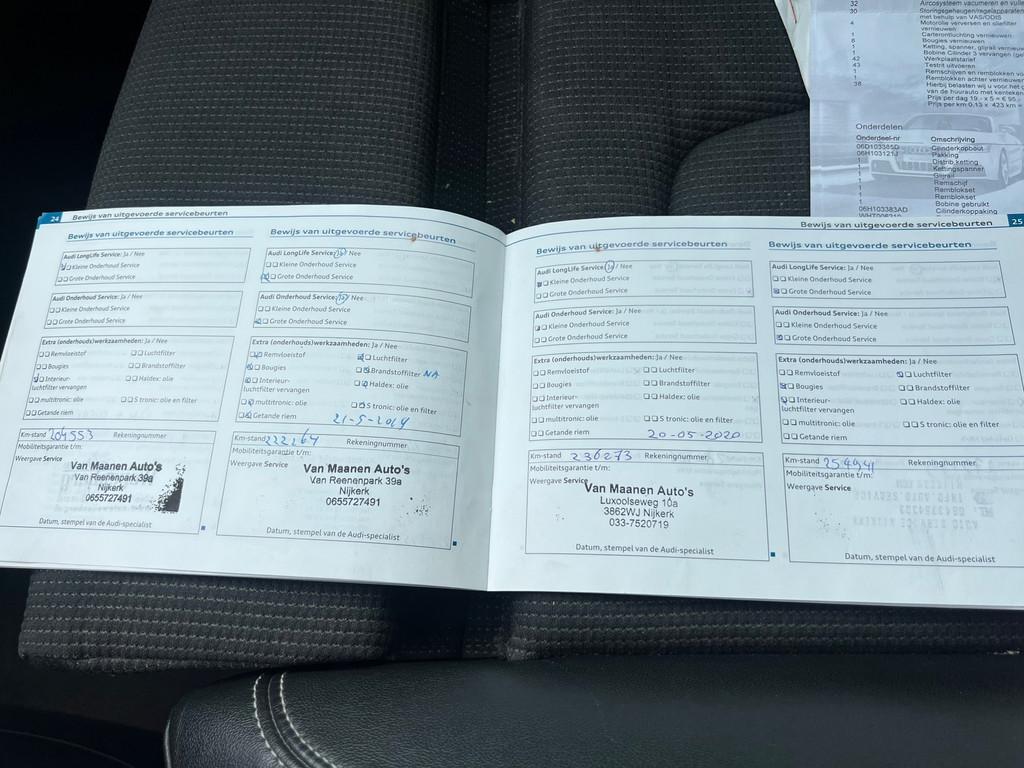 32 Aircosysteem vacumeren en
30 Storingsgeheugen/regelapparaten
met behulp van VAS/ODIS
4 Motorolie verversen en oliefilter
vernieuwen
1 Carterontluchting vernieuwen
8 Bougies vernieuwen
1 Ketting, spanner, glijrail
1 Bobine Cilinder 3 vervangen
42 Werkplaatstarief
43 Testrit uitvoeren
1 Remschijven en remblokken
1 Remblokken achter vernieuwen
38 Hierbij belasten wij u voor het
van de huurauto met kenteken
Prijs per dag 19,- x 5 = € 95,-
Prijs per km 0,13 x 423 km =
Onderdelen
Onderdeel-nr Omschrijving
06D103385D Cilinderkopbout
06H103121J Pakking
1 Distrib.ketting
1 Kettingspanner
1 Glijrail
1 Remschijf
1 Remblokset
1 Remblokset
1 Bobine gebruikt
06H103383AD Cilinderkoppaking
24 Bewijs van uitgevoerde servicebeurten
Bewijs van uitgevoerde servicebeurten
Audi LongLife Service: Ja / Nee
Kleine Onderhoud Service
Grote Onderhoud Service
Audi Onderhoud Service: Ja / Nee
Kleine Onderhoud Service
Grote Onderhoud Service
Extra (onderhouds)werkzaamheden: Ja / Nee
Remvloeistof Luchtfilter
Bougies Brandstoffilter
Interieur- Haldex: olie
luchtfilter vervangen
multitronic: olie S tronic: olie en filter
Getande riem
Km-stand 204553 Rekeningnummer
Mobiliteitsgarantie t/m:
Weergave Service
Van Maanen Auto's
Van Reenenpark 39a
Nijkerk
0655727491
Datum, stempel van de Audi-specialist
Bewijs van uitgevoerde servicebeurten
Audi LongLife Service: Ja / Nee
Kleine Onderhoud Service
Grote Onderhoud Service
Audi Onderhoud Service: Ja / Nee
Kleine Onderhoud Service
Grote Onderhoud Service
Extra (onderhouds)werkzaamheden: Ja / Nee
Remvloeistof Luchtfilter
Bougies Brandstoffilter NA
Interieur- Haldex: olie
luchtfilter vervangen
multitronic: olie S tronic: olie en filter
Getande riem 21-5-2019
Km-stand 222164 Rekeningnummer
Mobiliteitsgarantie t/m:
Weergave Service
Van Maanen Auto's
Van Reenenpark 39a
Nijkerk
0655727491
Datum, stempel van de Audi-specialist
Bewijs van uitgevoerde servicebeurten 25
Bewijs van uitgevoerde servicebeurten
Audi LongLife Service: Ja / Nee
Kleine Onderhoud Service
Grote Onderhoud Service
Audi Onderhoud Service: Ja / Nee
Kleine Onderhoud Service
Grote Onderhoud Service
Extra (onderhouds)werkzaamheden: Ja / Nee
Remvloeistof Luchtfilter
Bougies Brandstoffilter
Interieur- Haldex: olie
luchtfilter vervangen
multitronic: olie S tronic: olie en filter
Getande riem 20-05-2020
Km-stand 236273 Rekeningnummer
Mobiliteitsgarantie t/m:
Weergave Service
Van Maanen Auto's
Luxoolseweg 10a
3862WJ Nijkerk
033-7520719
Datum, stempel van de Audi-specialist
Bewijs van uitgevoerde servicebeurten
Audi LongLife Service: Ja / Nee
Kleine Onderhoud Service
Grote Onderhoud Service
Audi Onderhoud Service: Ja / Nee
Kleine Onderhoud Service
Grote Onderhoud Service
Extra (onderhouds)werkzaamheden: Ja / Nee
Remvloeistof Luchtfilter
Bougies Brandstoffilter
Interieur- Haldex: olie
luchtfilter vervangen
multitronic: olie S tronic: olie en filter
Getande riem
Km-stand 254941 Rekeningnummer
Mobiliteitsgarantie t/m:
Weergave Service
Datum, stempel van de Audi-specialist